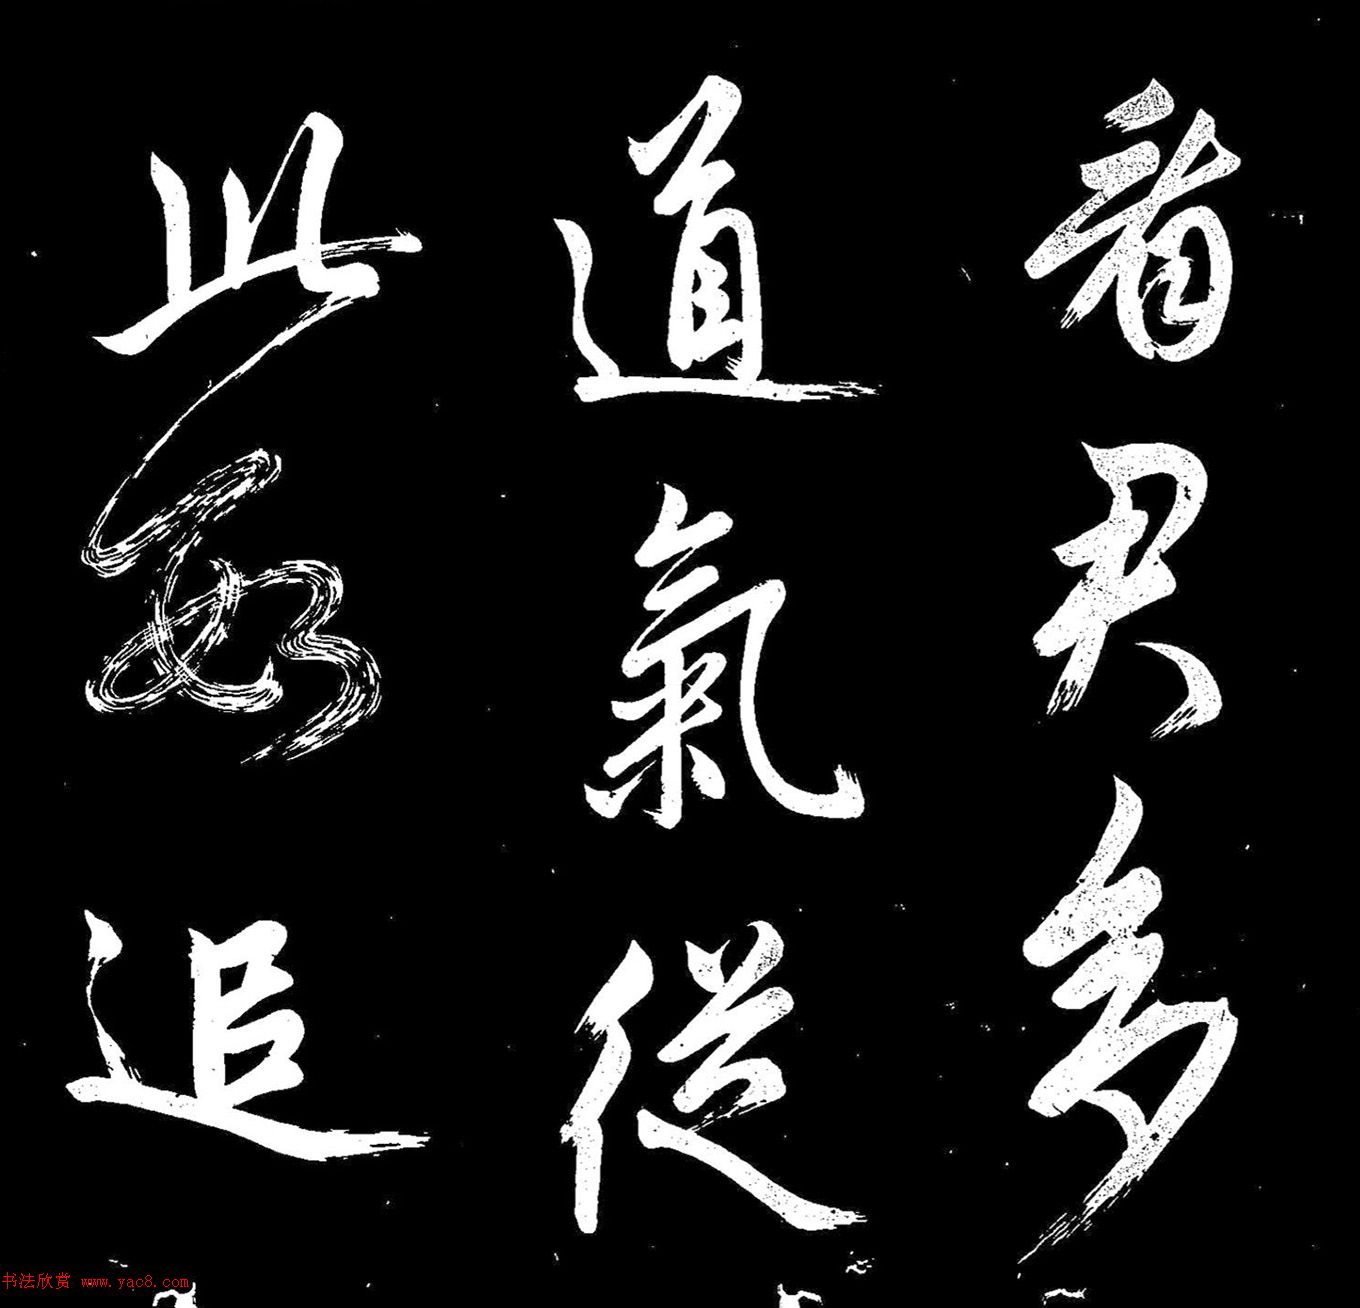 看君多
道氣從
此數追
书法欣赏 www.yac8.com